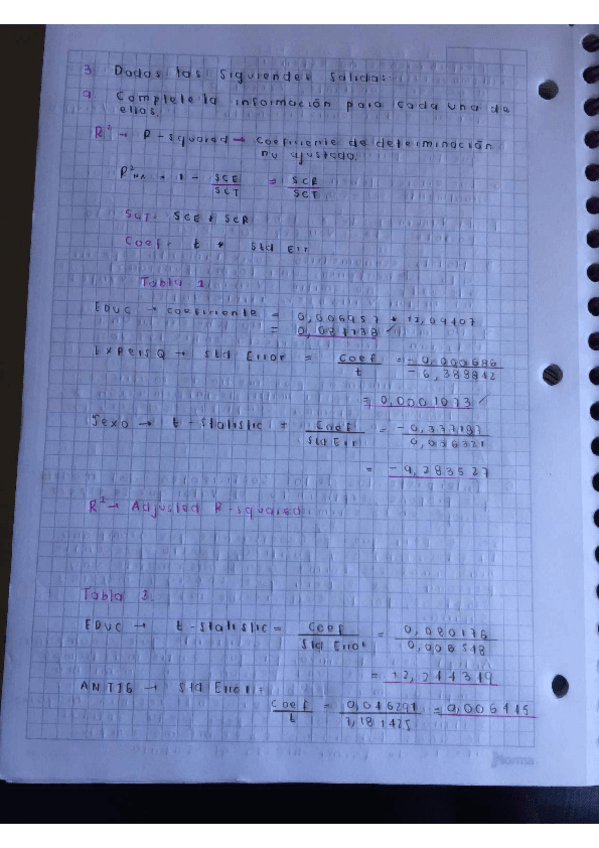 3. Dadas las siguientes salidas:
a. Complete la información para cada una de
ellas.
R² → R-squared → coeficiente de determinación
no ajustado.
R²NA = 1 - SCE/SCT = SCR/SCT
SCT = SCE + SCR
Coef = t * Std Err
Tabla 1
EDUC → coeficiente = 0,006957 * 12,04407
=
EXPERSQ → Std Error = Coef/t = -0,000686/-6,388842
= 0,0001073
Sexo → t-statistic = Coef/Std Err
= -9,283527
R² → Adjusted R-squared
Tabla 2
EDUC → t-statistic = Coef/Std Error = 0,080176/
=
ANT16 → Std Error =
Coef/t =
norma